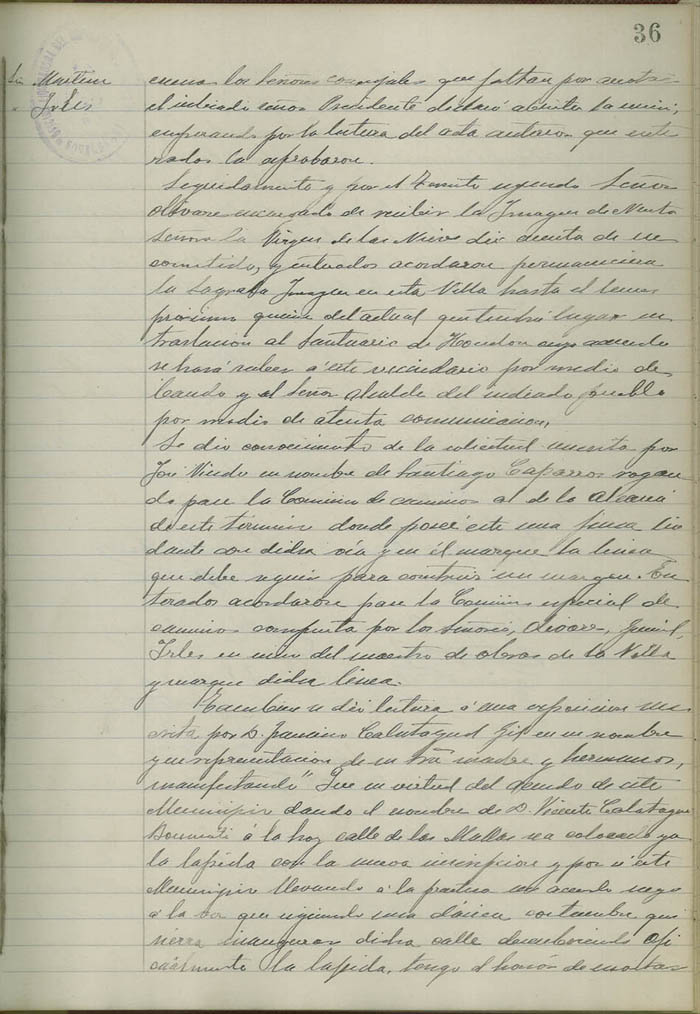 36
Sr. Martinez
" Irles
cuenca los Señores concejales que faltan por anotar
el indicado Señor Presidente declaró abierta la sesión,
empezando por la lectura del acta anterior que ente
rados la aprobaron.
Seguidamente y por el Teniente segundo Señor
Olivare encargado de recibir la Imagen de Nuestra
Señora la Virgen de las Nieves dió cuenta de su
cometido, y enterados acordaron permaneciera
la Sagrada Imagen en esta Villa hasta el lunes
próximo quince del actual que tendrá lugar su
traslacion al Santuario de Hondon cuyo acuerdo
se hará saber á este vecindario por medio de
bando y al Señor Alcalde del indicado pueblo
por medio de atenta comunicacion.
Se dió conocimiento de la solicitud suscrita por
José Viudo en nombre de Santiago Caparros rogan
do pase la Comision de caminos al de la
de este termino donde poseé este una finca lin
dante con dicha vía y en él marque la linea
que debe seguir para construir un margen. En
terados acordaron pase la Comision especial de
caminos compuesta por los Señores, Olivare,
Irles en union del maestro de obras de la Villa
y marque dicha linea.
Tambien se dió lectura á una exposicion sus
crita por D. Francisco Calatayud Gil en su nombre
y en representacion de su Sra madre y hermanos,
manifestando "Que en virtud del acuerdo de este
Municipio dando el nombre de D. Vicente Calatayud
Bonmatí á la hoy calle de las Mallas sea colocada ya
la lapida con la nueva inscripcion y por si este
Municipio llevando á la practica su acuerdo
á la vez que siguiendo una clásica costumbre qui
siera inaugurar dicha calle descubriendo ofi
cialmente la lapida, tengo el honor de